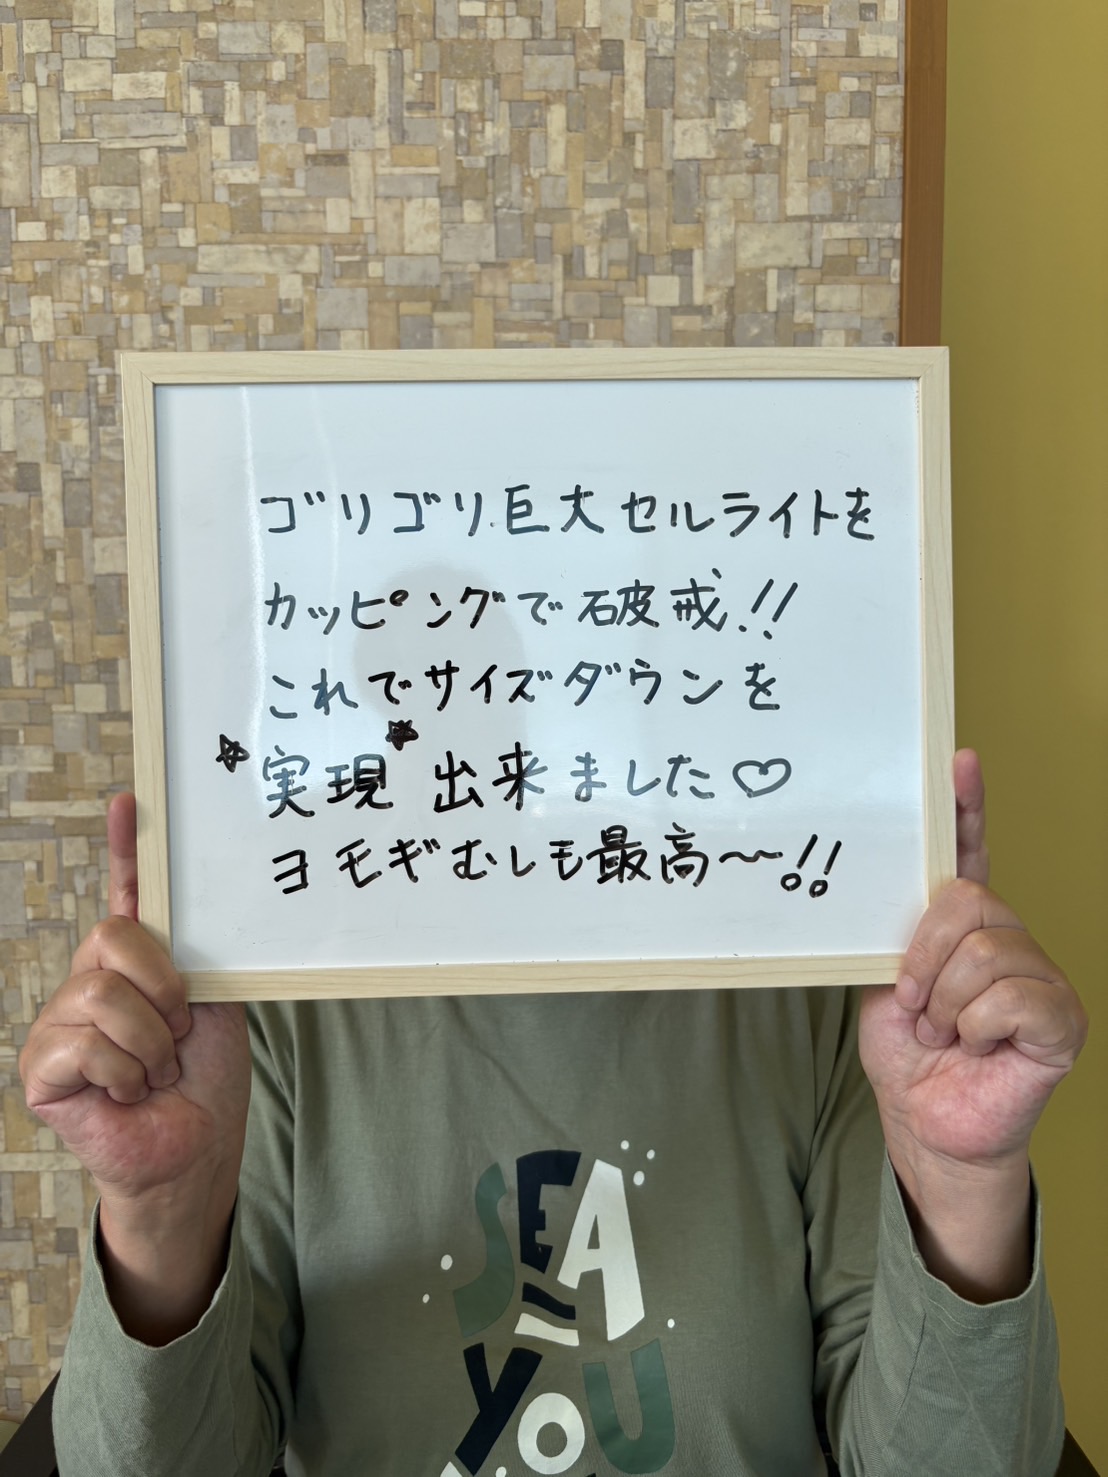 ゴリゴリ巨大セルライトを
カッピングで破戒!!
これでサイズダウンを
☆実現☆出来ました♡
ヨモギむしも最高〜!!
SEA
YOU